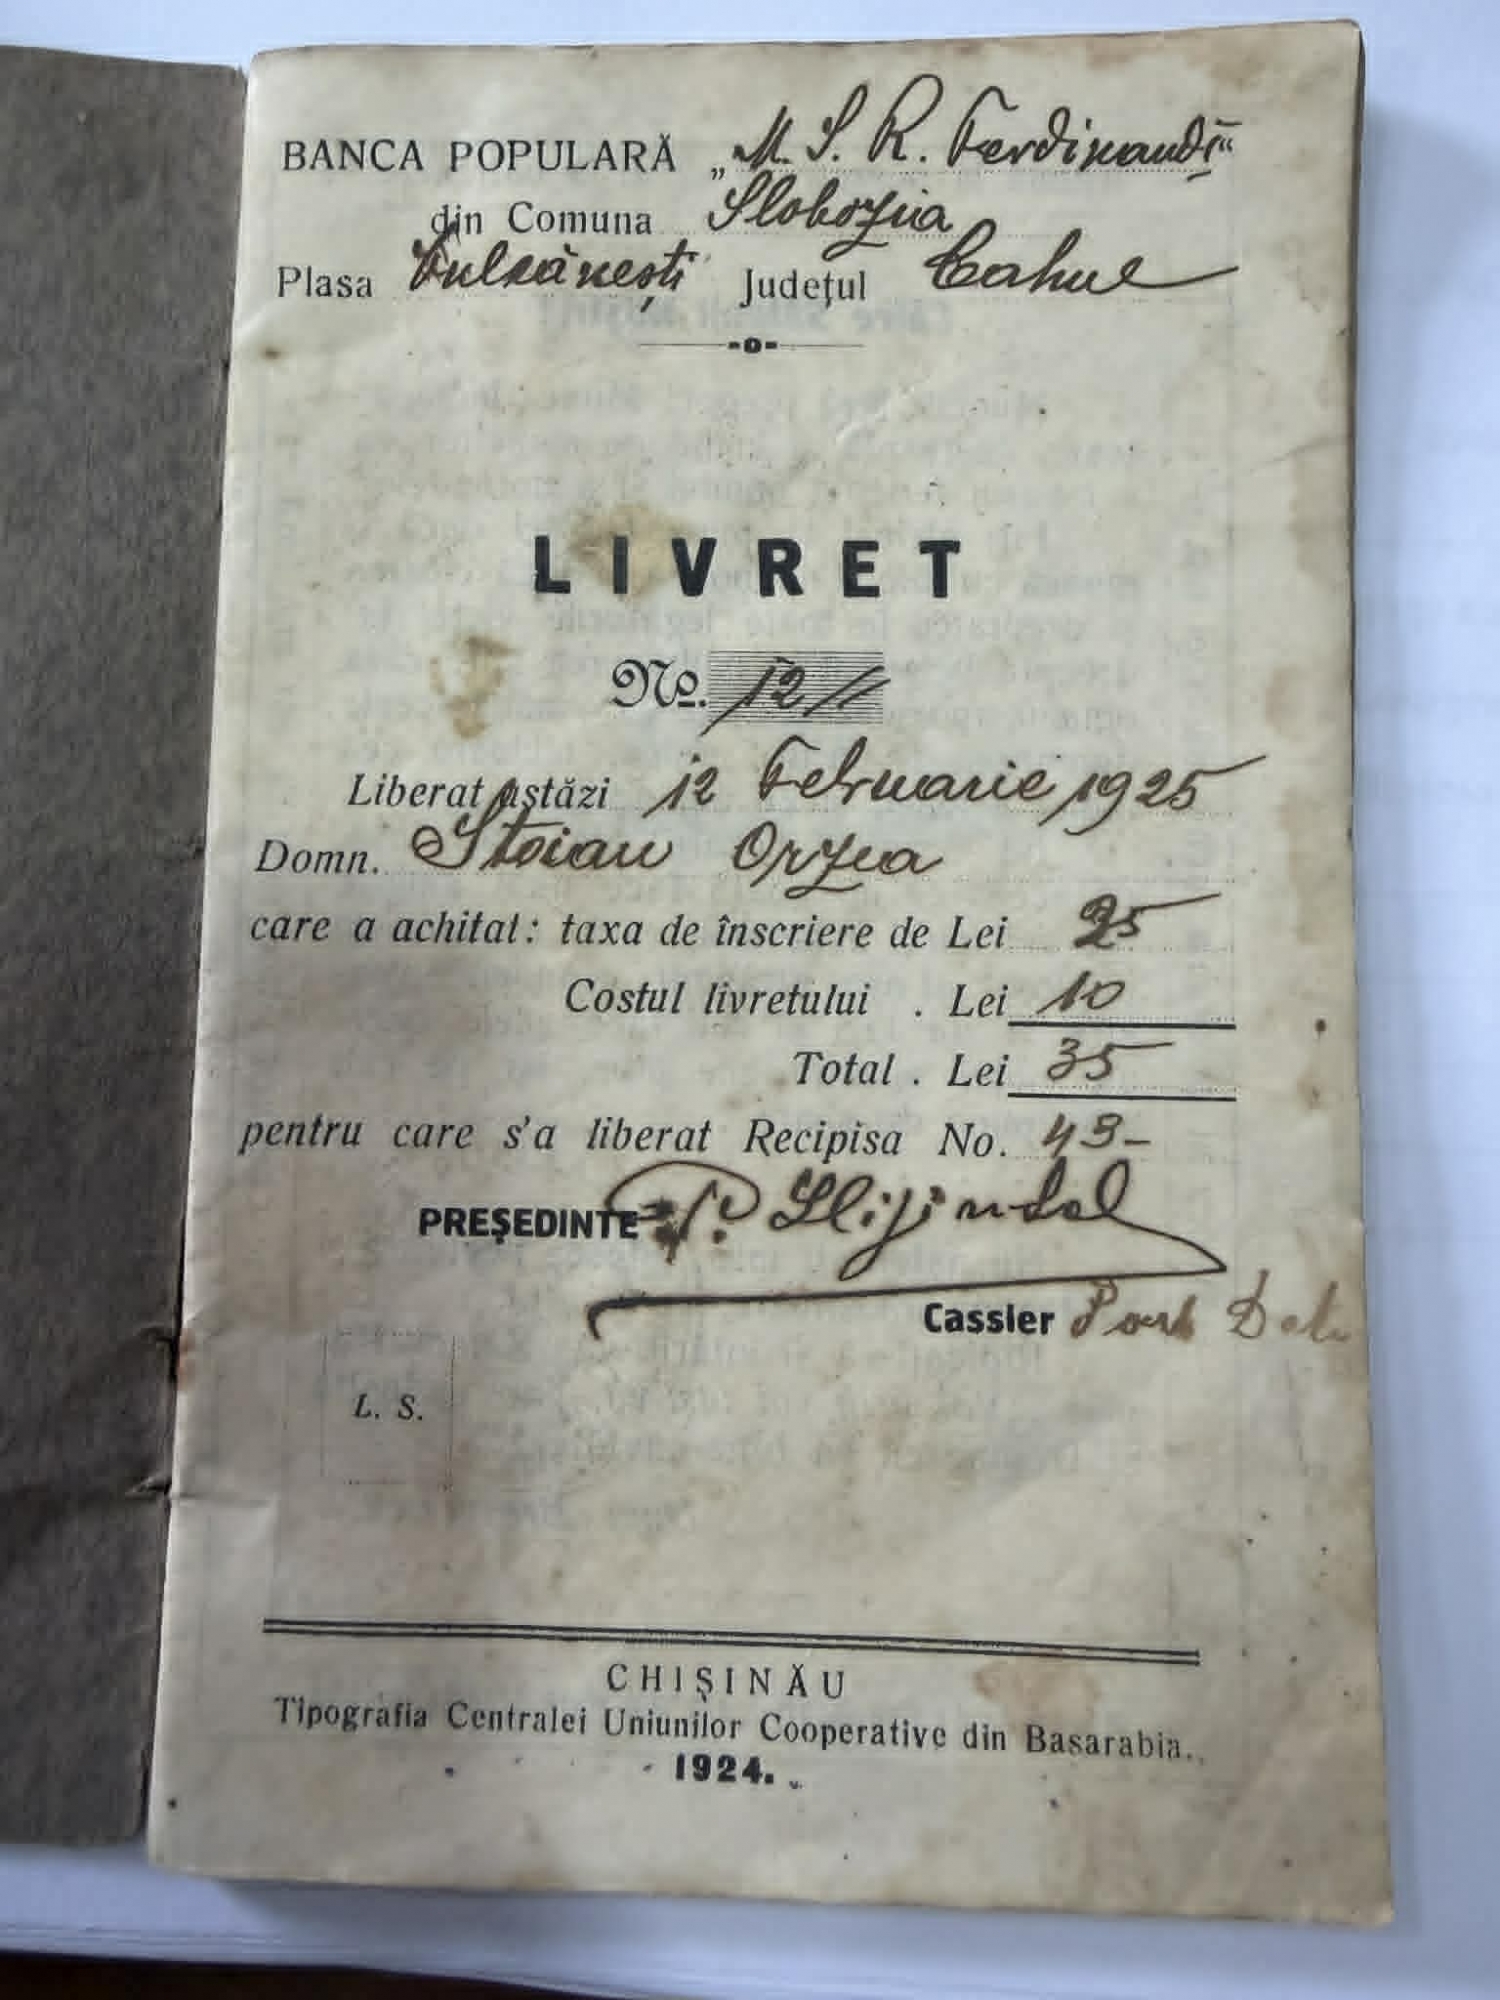 BANCA POPULARĂ „M. S. R. Ferdinand I“
din Comuna Slobozia
Plasa Vulcănești Județul Cahul
-o-
LIVRET
No. 12//
Liberat astăzi 12 Februarie 1925
Domn. Stoian Orzea
care a achitat: taxa de înscriere de Lei 25
Costul livretului . Lei 10
Total . Lei 35
pentru care s'a liberat Recipisa No. 43-
PREȘEDINTE P.
Cassier
L. S.
CHIȘINĂU
Tipografia Centralei Uniunilor Cooperative din Basarabia.
1924.